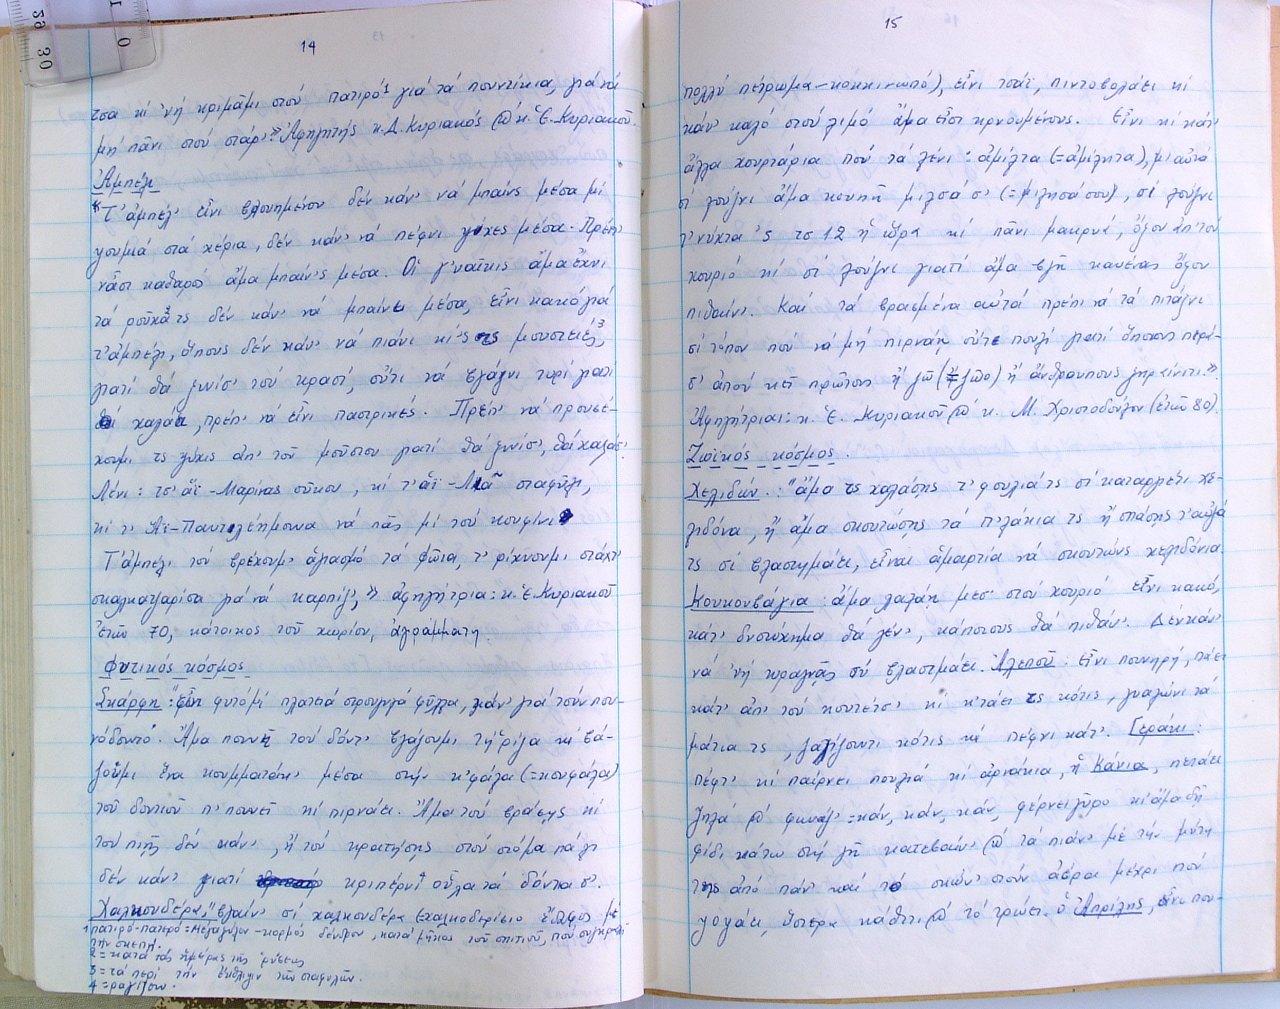 14
τσα κί 'νή κριμᾶμι στού πατιρό¹ γιά τά πουντίκια, γιά νά
μή πᾶνι στού στάρ'" Ἀφηγητής κ.Δ. Κυριακός κ. Ἑ. Κυριακοῦ.
Ἀμπέλι
"Τ' ἀμπέλ' εἶνι βλουημένου δέν κάν' νά μπαίνς μέσα μί
γουμιά στά χέρια, δέν κάν' νά πέφνι μέσα. Πρέπ'
νἆσι καθαρός ἅμα μπαίν'ς μέσα. Οἱ γ'ναῖκις ἅμα ἔχνι
τά ροῦχα² τς δέν κάν' νά μπαίνι μέσα, εἶνι κακό γιά
τ' ἀμπέλι, ὅπους δέν κάν' νά πιάνι κί 'ς τς μουστιές³,
γιατί θά ξινίσ' τού κρασί, οὔτι νά βγάζνι τυρί γιατί
θά χαλάσ, πρέπ' νά εἶνι παστρικές. Πρέπ' νά προυσέ-
χουμι τς ἀπ' τοῦ μοῦστου γιατί θά ξινίσ', θά χαλάσ'.
Λένι: τσ' ἅϊ-Μαρίνας σῦκου, κί τ' ἅϊ-Λιᾶ σταφύλι,
κί τ' Ἁϊ-Παντιλέημουνα νά πᾶς μί τού κουφίνι
Τ' ἀμπέλι τού βρέχουμι ἁγιασμό τά Φῶτα, τ' ρίχνουμι στάχτ'
σκαλκατζαρίσια γιά νά καρπίσ'," ἀφηγήτρια: κ. Ἑ. Κυριακοῦ
ἐτῶν 70, κάτοικος τοῦ χωρίου, ἀγράμματη.
Φυτικός κόσμος
Σκάρφη: "φυτό μί πλατειά στρουγγυλά φύλλα, κάν' γιά τούν που-
νόδοντο. Ἅμα πουνῆ τού δόντ' βγάζουμι τή ρίζα κί βά-
ζουμι ἕνα κουμματάκι μέσα στήν κ'φάλα (=κουφάλα)
τοῦ δοντιοῦ π' πουνεῖ κί πιρνάει. Ἅμα τού βράσης κί
τού πιῆς δέν κάν', ἤ τού κρατήσης στού στόμα πάλι
δέν κάν' γιατί κριπέρνι⁴ οὗλα τά δόντια σ'.
Χαλκουδέρα, "βγαίν' σί χαλκουδέρα ἔδαφος μέ
1 πατιρό-πατερό = Μεγάλος κορμός δένδρου, κατά μῆκος τοῦ σπιτιοῦ, πού συγκρατεῖ
τήν σκεπή.
2 = κατά τάς ἡμέρας τῆς ρύσεως
3 = τά περί τήν ἔκθλιψιν τῶν σταφυλῶν.
4 = ραγίζουν.
15
πολλύ πέτρωμα-κοκκινωπό), εἶνι τσάϊ, πιντοβολάει κί
κάν' καλό στού λιμό ἅμα εἶσι κρυουμένους. Εἶνι κί κάτ'
ἄλλα χουρτάρια πού τά λένι: ἀμίλτα (=ἀμίλητα), μί αὐτά
σί λούζνι ἅμα κουπῆ μιλσά σ' (=μιλησά σου), σί λούζνι
τ' νύχτα 'ς τσ 12 ἡ ὥρα κί πᾶνι μακρυά, ὄξου ἀπ' τού
χουριό κί σί λούζνι γιατί ἅμα βγῆ κανένας ὄξου
πιθαίν'. Καί τά βρασμένα αὐτά πρέπι νά τά πιτάξνι
σί τόπου πού νά μή πιρνάη οὔτε πουλί γιατί ὅποιου πιρά-
σ' ἀπού κεῖ πρῶτου ἤ ζῶ (=ζῶο) ἤ ἄνθρουπους".
Ἀφηγήτριαι: κ. Ἑ. Κυριακοῦ κ. Μ. Χριστοδούλου (ἐτῶν 80).
Ζωικός κόσμος.
Χελιδών.: "ἅμα τς χαλάσης τ' φουλιά τς σί καταρριέτι χε-
λιδόνα, ἤ ἅμα σκουτώσης τά π'λάκια τς ἤ σπάσης τ' αὐγά
τς σί βλαστημάει, εἶναι ἁμαρτία νά σκουτώνς χελιδόνια
Κουκουβάγια: ἅμα λαλάη μέσ' στού χουριό εἶνι κακό,
κάτ' δυστύχημα θά γέν', κάποιους θά πιθάν'. Δέν κάν'
νά 'νή σύ βλαστιμάει. Ἀλεπού: εἶνι πουνηρή, πάει
κάτ' ἀπ' τού κουτέτσ' κί κ'τάει τς κότις, γυαλώνι τά
μάτια τς, ζαλίζουντι κότις κί πέφνι κάτ'. Γεράκι:
πέφτ' κί παίρνει πουλιά κί ἀρνάκια, ἡ Κάνια, πετάει
ψηλά φωνάζ': κάν, κάν, κάν, φέρνει γῦρο κί ἅμα δῆ
φίδι κάτω στή γῆ κατεβαίν' τό πιάν' μέ τήν μύτη
της ἀπό πάν' καί τό σκών' στόν ἀέρα μέχρι πού
ψοφάει, ὕστερα κάθιτι τό τρώει. ὁ Ἀπρίλης, εἶνι που-